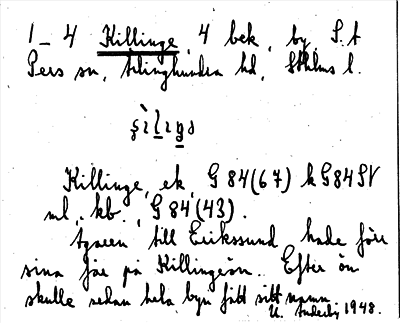 1–4 Killinge, 4 bek, by, S:t
Pers sn, Ärlinghundra hd, Sthlms l.
ṣìlịŋə
Killinge, ek, G 84(67) k G84SV
ml, kb, G 84(43).
Ägaren till Erikssund hade förr
sina får på Killingeön. Efter ön
skulle sedan hela byn fått sitt namn.
U. 1948.